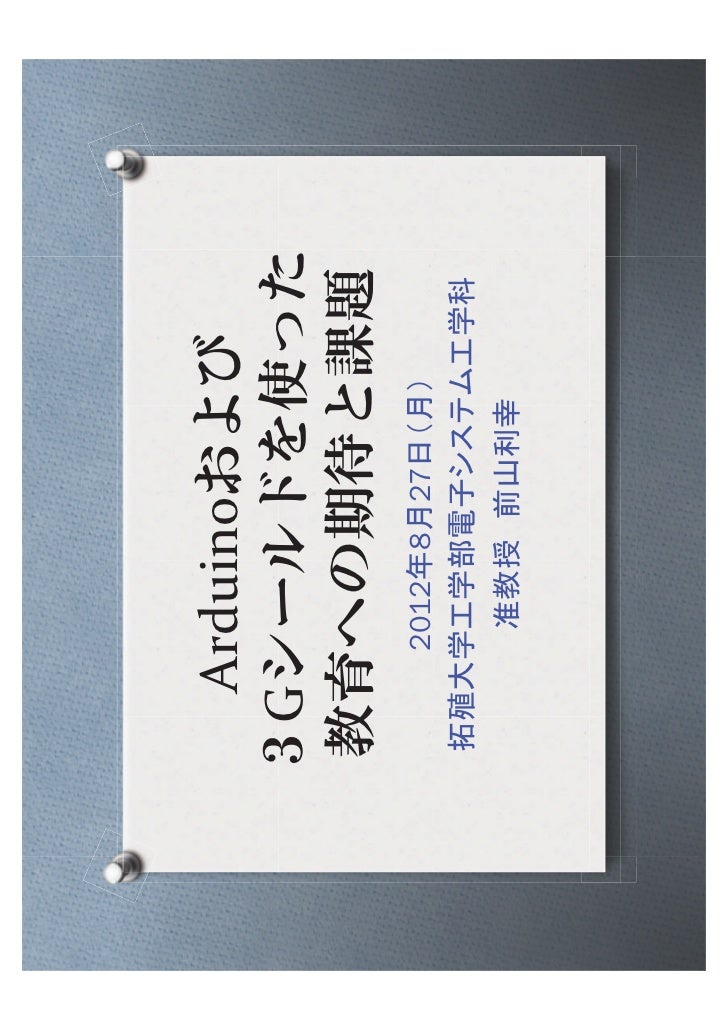 Arduinoおよび
３Gシールドを使った
教育への期待と課題
2012年8月27日（月）
拓殖大学工学部電子システム工学科
准教授　前山利幸